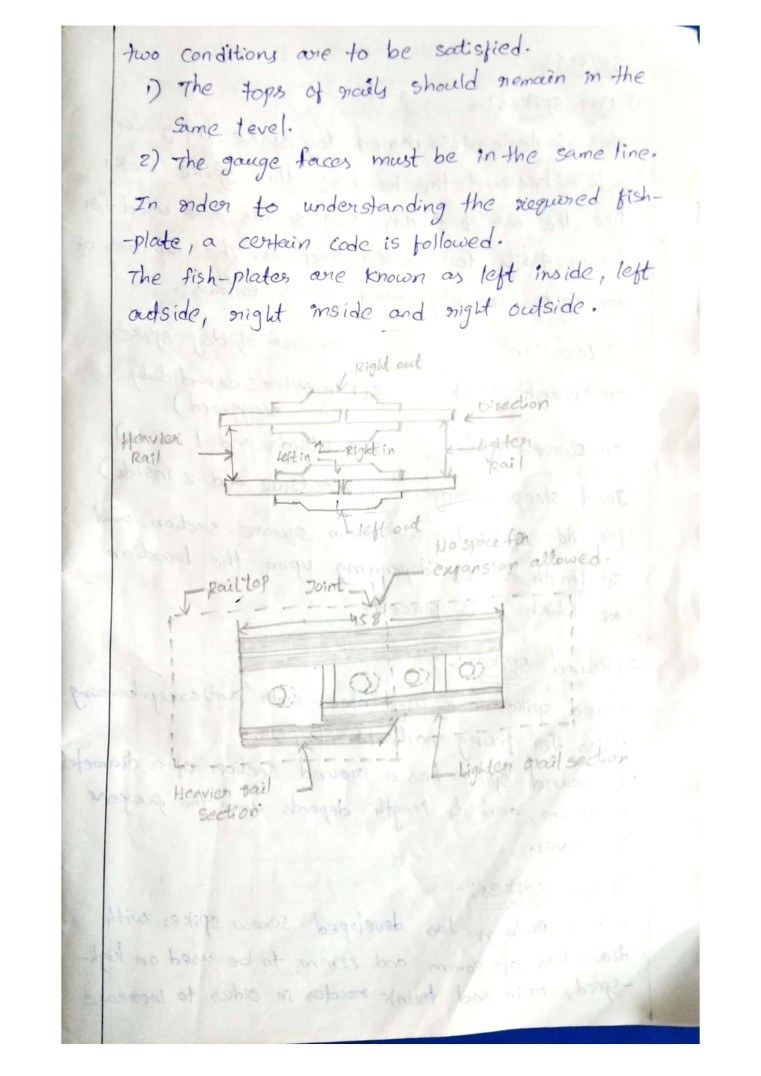 two conditions are to be satisfied.
1) The tops of rails should remain in the
Same level.
2) The gauge faces must be in the same line.
In order to understanding the required fish-
-plate, a certain code is followed.
The fish-plates are known as left inside, left
outside, right inside and right outside.
Right out
Direction
Heavier
Rail
Left in
Right in
Lighter
rail
left out
No space for
expansion allowed.
Rail top
Joint
458
Lighter rail section
Heavier rail
section